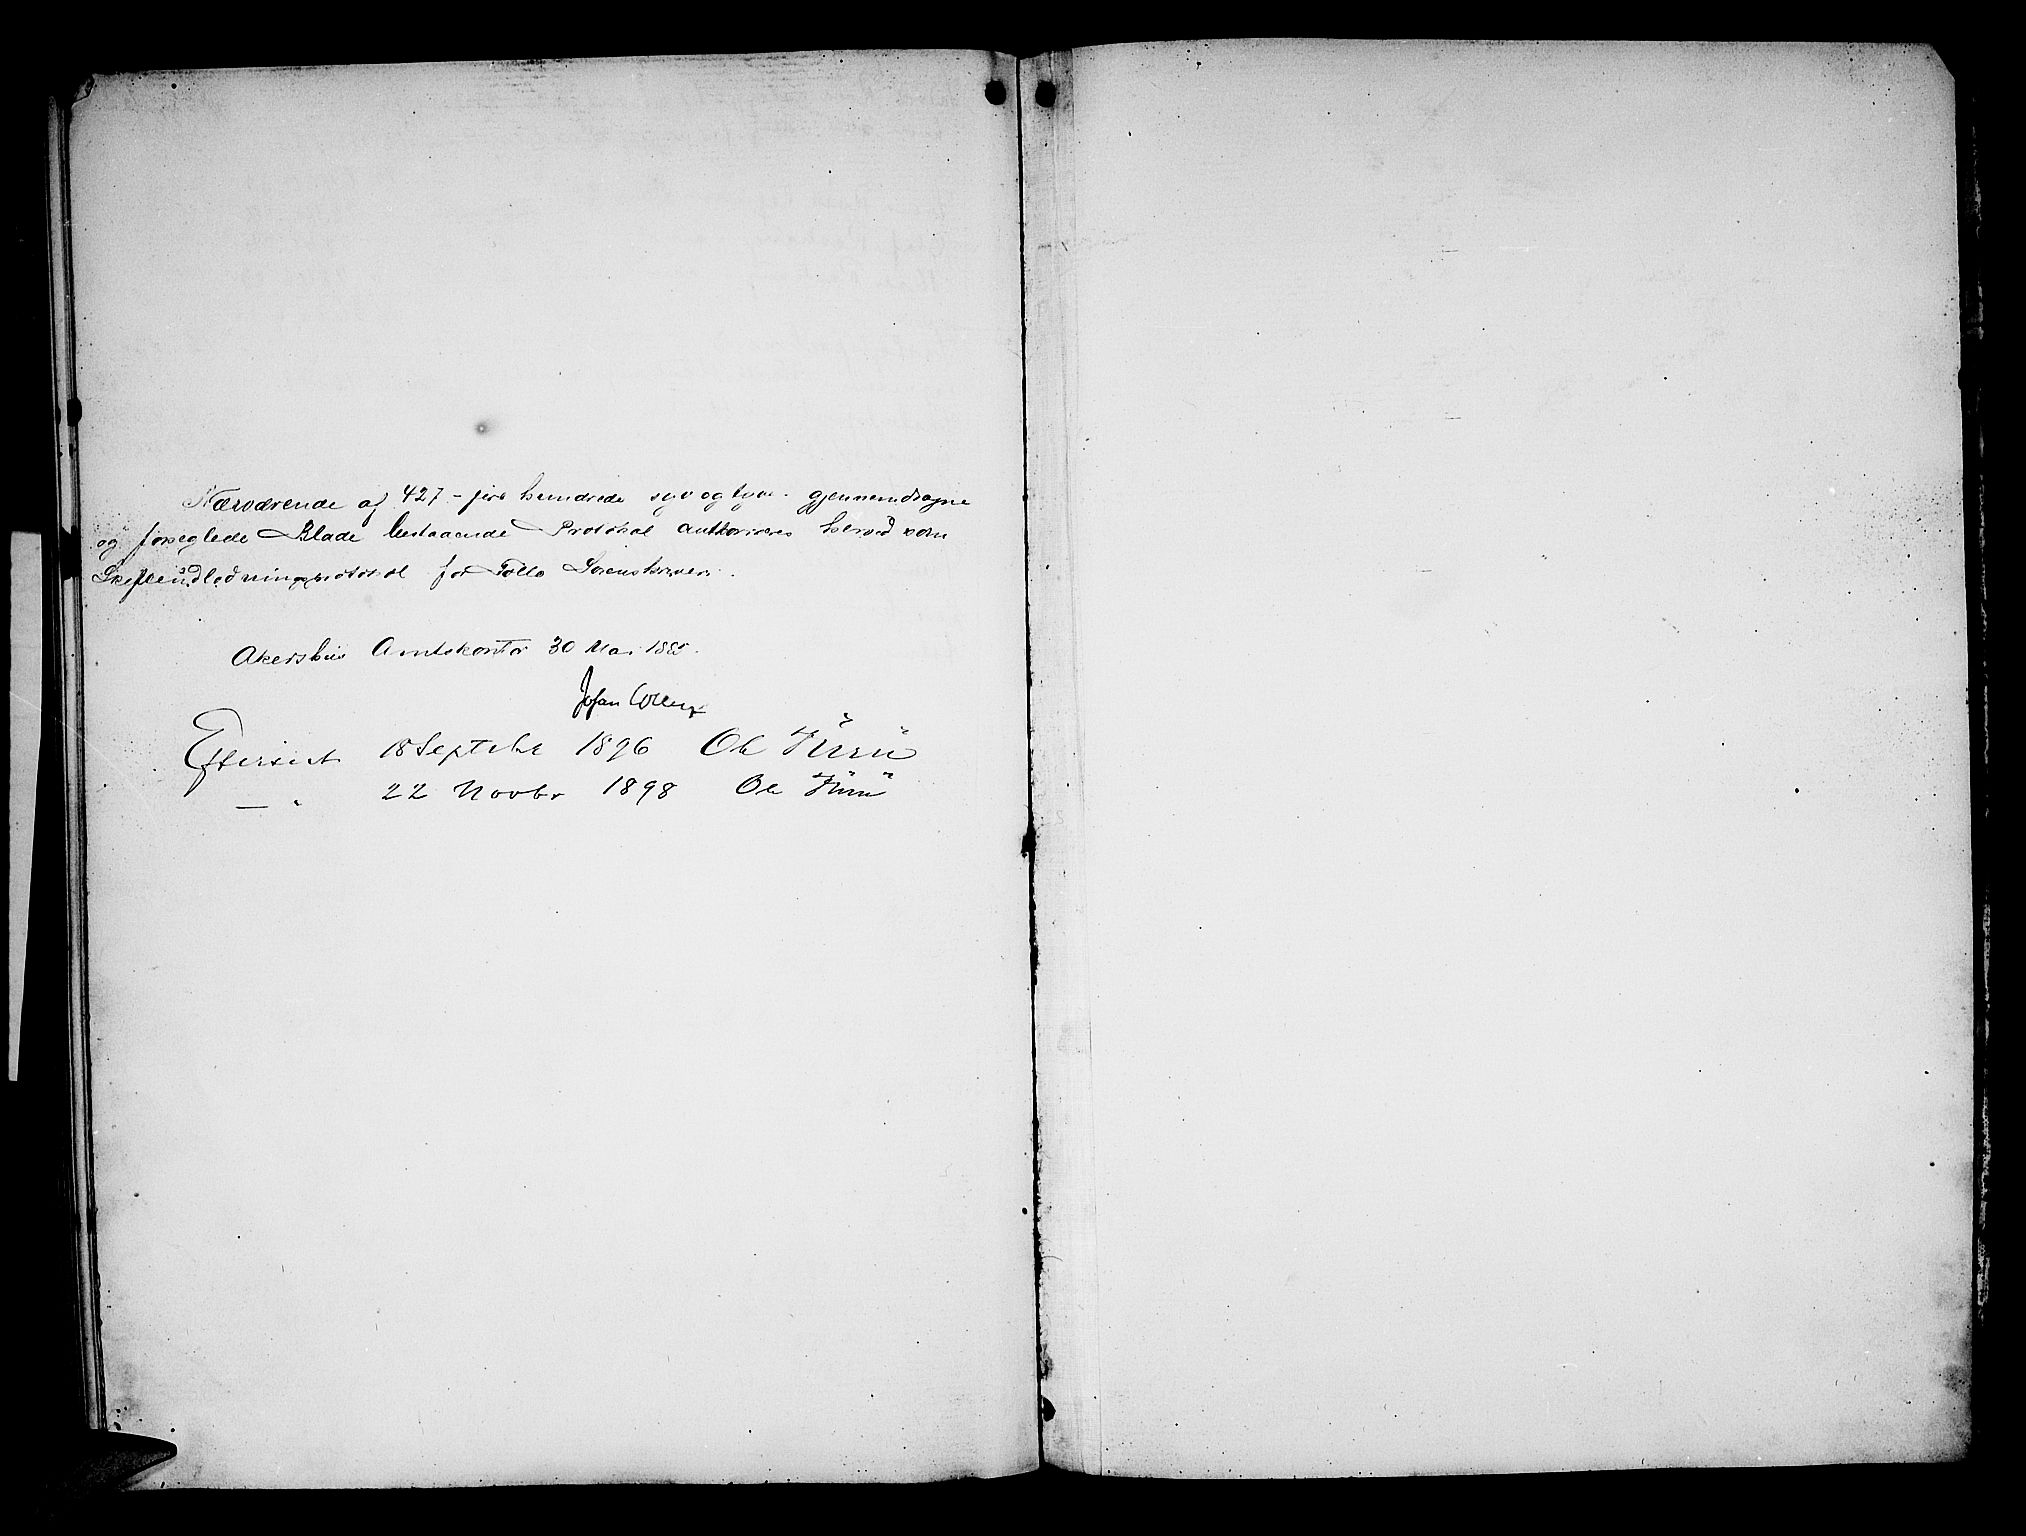 Nærværende af 427 - fire hundrede syv og tyve - gjennemdragne
og forseglede Blade bestaaende Protokol authoriseres herved som
Skifteudlodningsprotokol for Follo Sorenskriveri.
Akershus Amtskontor 30 Mai 188
Johan Collett
Efterseet 18 Septebr 1896 Ole Furu
— " 22 Novbr 1898 Ole Furu